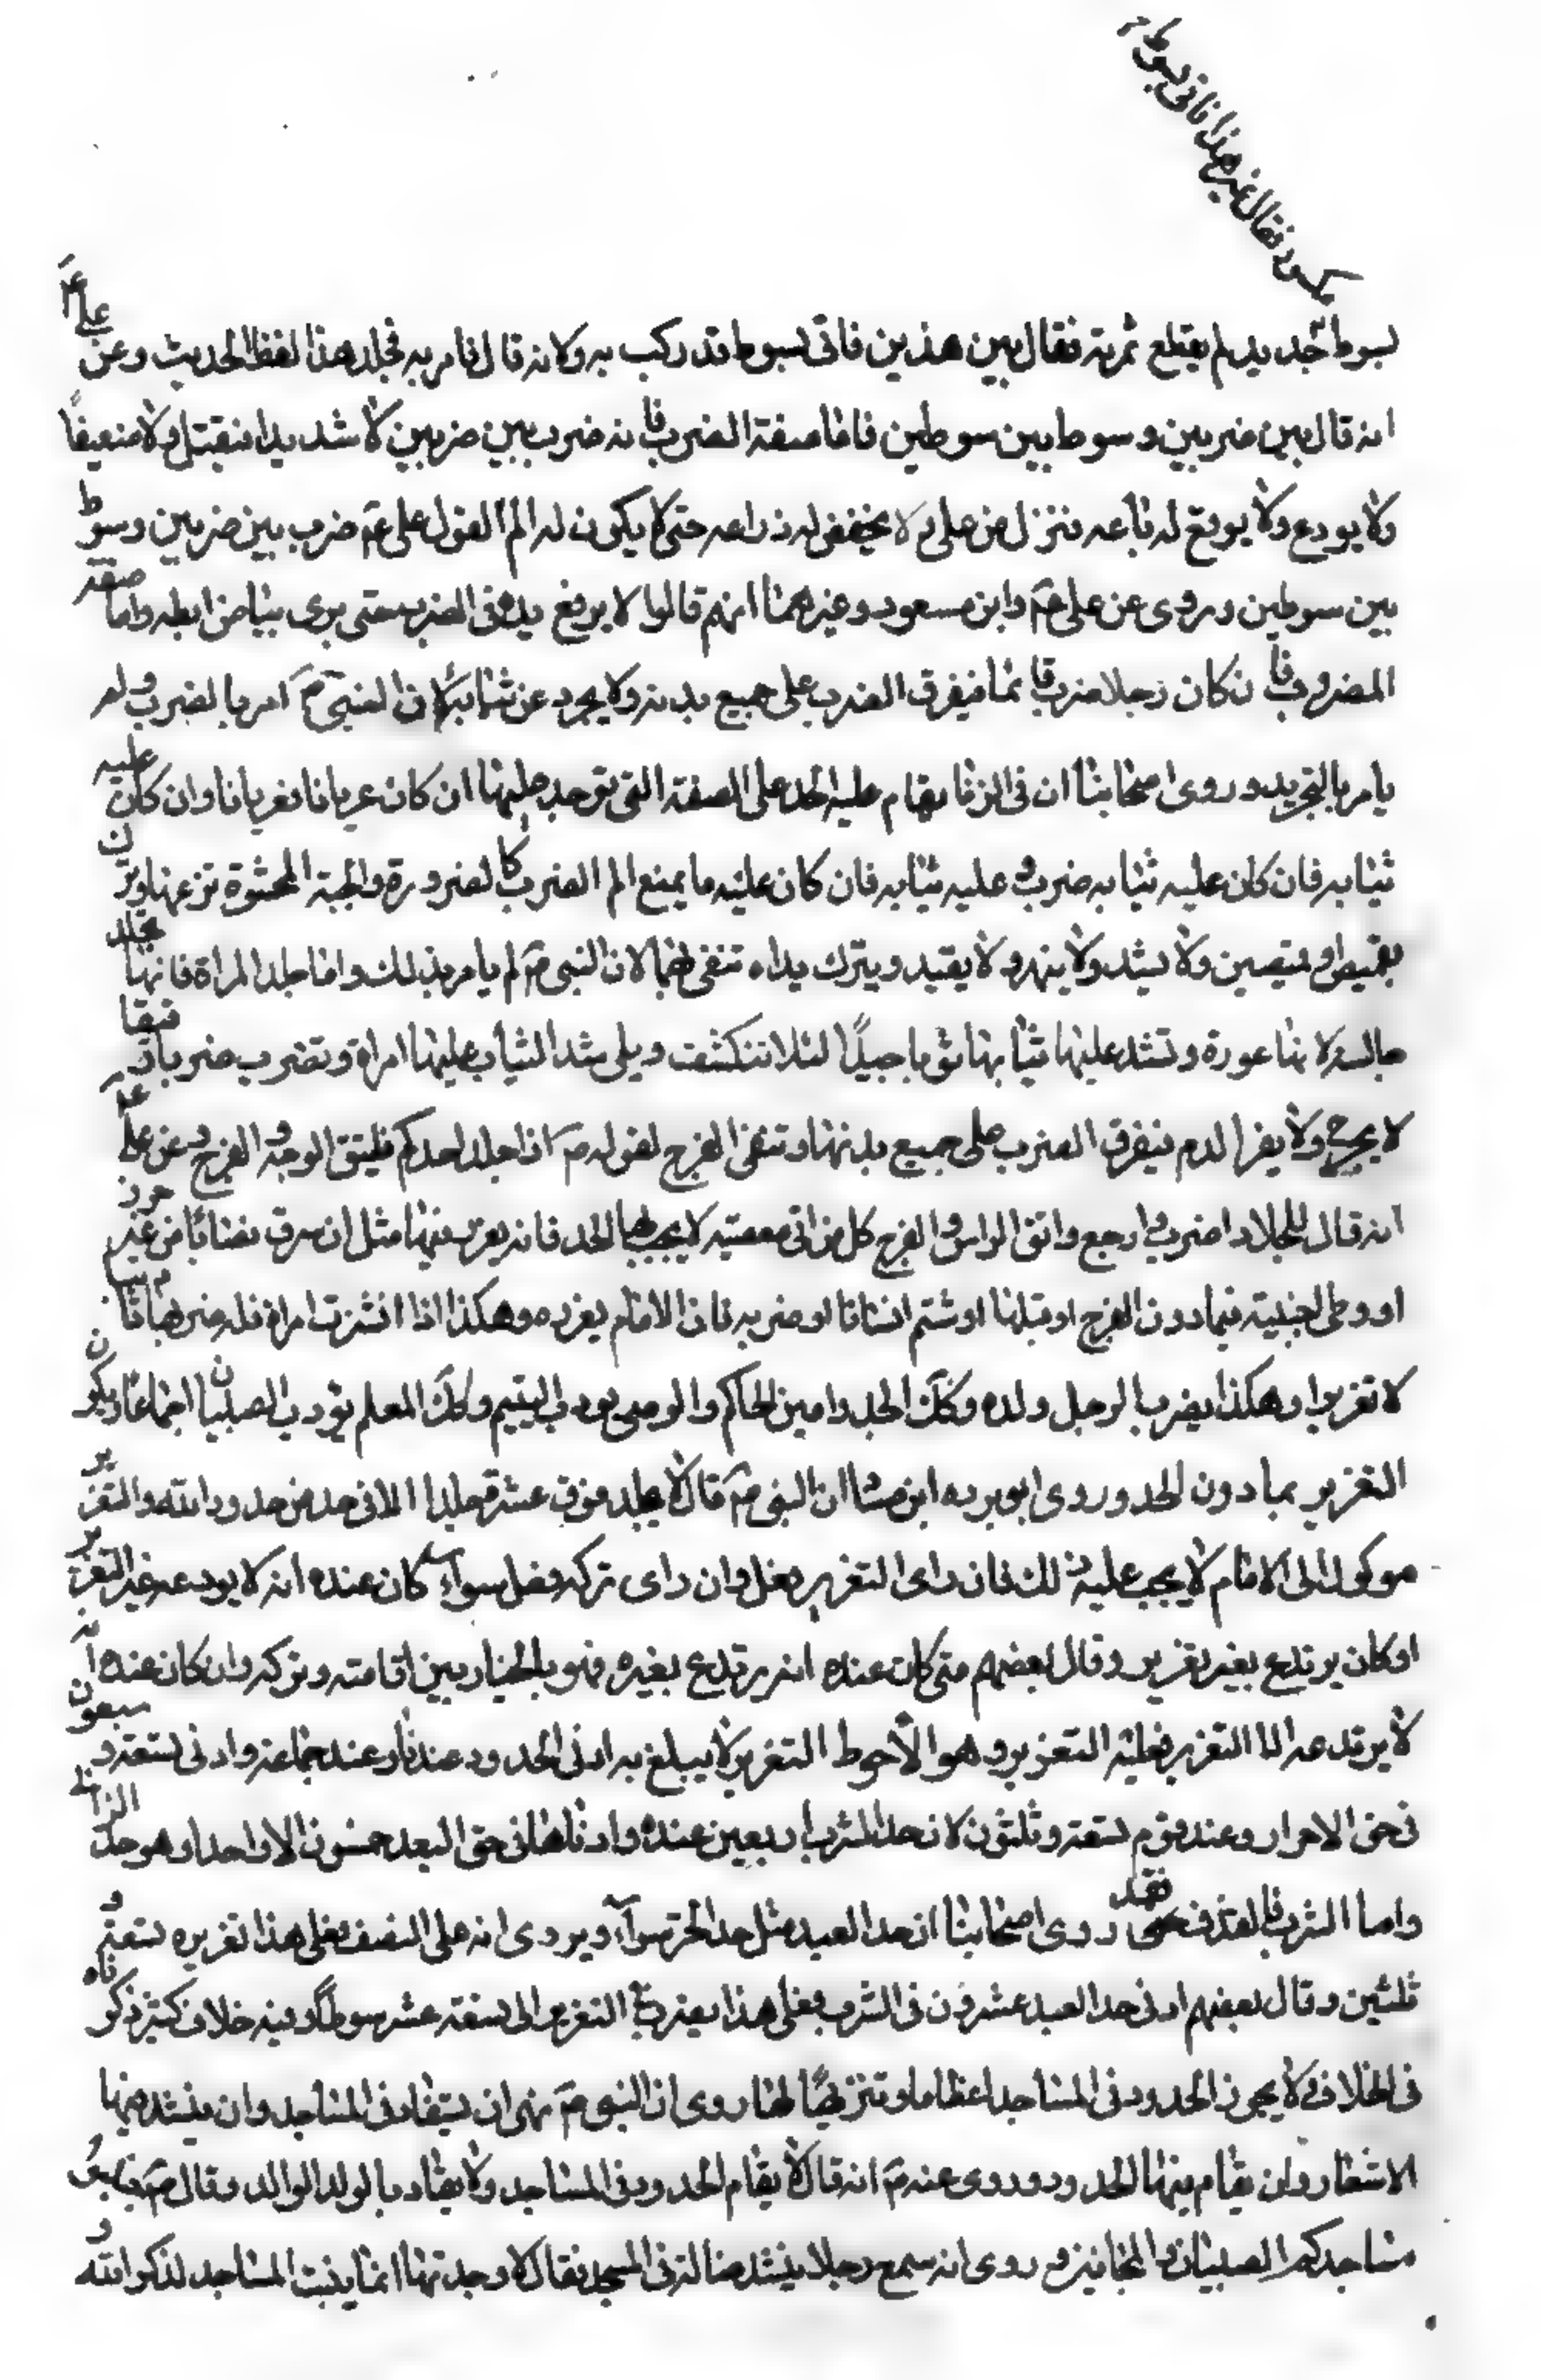 مكسور فقال غير هذا فاتى بسوط
بسوط جديد لم يقطع ثمرته فقال بين هذين فاتى بسوط قد ركب به ولانه قال فامر به فجلد هذا لفظ الحديث وعن علي ع
انه قال بين ضربين وسوط بين سوطين فاما صفة الضرب فانه ضرب بين ضربين لا شديدا فيقتل ولا ضعيفا
ولا يودع ولا يرفع له باعه فينزل من على ولا يخفض له ذراعه حتى لا يكون له الم القول على ع ضرب بين ضربين وسوط
بين سوطين وروى عن على ع وابن مسعود وغيرهما انهم قالوا لا يرفع يده في الضرب حتى يرى بياض ابطه واما صفة
المضروب فان كان رجلا ضرب قائما فيفرق الضرب على جميع بدنه ولا يجرد عن ثيابه لان النبي ص امر بالضرب ولم
يامر بالتجريد وروى اصحابنا ان في الزنا يقام عليه الحد على الصفة التي توجد عليها ان كان عريانا فعريانا وان كان عليه
ثيابه فان كان عليه ثيابه ضرب وعليه ثيابه فان كان عليه ما يمنع الم الضرب كالفروة والجبة المحشوة نزعها وترك
بقميص او قميصين ولا يشد ولا يمد ولا يقيد ويترك يداه تتقى بهما لان النبي ص لم يامر بذلك واما جلد المراة فانها تجلد
جالسة لانها عورة وتشد عليها ثيابها شدا جيدا لئلا تنكشف ويلى شد الثياب عليها امراة وتضرب ضربا رفيقا
لا يجرح ولا يفر الدم فيفرق الضرب على جميع بدنها وتتقى الفرج لقوله ص اذا جلد احدكم فليتق الوجه والفرج وعن على ع
انه قال للجلاد اضرب وارجع واتق الراس والفرج كل من اتى معصية لا يجب بها الحد فانه يعزر فيها مثل ان سرق نصابا من غير حرز
او وطى اجنبية فيما دون الفرج او قبلها او شتم انسانا او ضربه فان الامام يعزره وهكذا اذا نشزت امراة فله ضربها تاديبا
لا تعزيرا وهكذا يضرب الرجل ولده وكك الجد وامين الحاكم والوصى يودب اليتيم وكك المعلم يؤدب الصبيان اجماعا ويكون
التعزير بما دون الحد وروى ابو برده ابن ان النبي ص قال لا يجلد فوق عشر جلدات الا في حد من حدود الله والتعزير
موكول الى الامام لا يجب عليه ذلك فان راى التعزير فعل وان راى تركه فعل سواء كان عنده انه لا يردعه غير التعزير
او كان يرتدع بغير تعزير وقال بعضهم متى كان عنده انه يرتدع بغيره فهو بالخيار بين اقامته وتركه وان كان عنده انه
لا يرتدعه الا التعزير فعليه التعزير وهو الاحوط التعزير لا يبلغ به ادنى الحدود عندنا وعند جماعة وادنى تسعة وسبعون
في حق الاحرار وعند قوم تسعة وثلثون لان حد الشرب اربعين عنده وادناها في حق العبد خمسون الا واحدا وهو حد الزنا
واما الشرب والقذف فقد روى اصحابنا ان حد العبد مثل حد الحر سواء ويروى انه على النصف فعلى هذا تعزيره تسعة و
ثلثين وقال بعضهم ادنى حد العبد عشرون في الشرب فعلى هذا يضرب في التعزير الى تسعة عشر سوطا وفيه خلاف كثير ذكرناه
في الخلاف لا يجوز الحدود في المساجد اعظاما وتنزيها لها روى ان النبي ص نهى ان يستقاد في المساجد وان ينشد فيها
الاشعار وان يقام فيها الحدود وروى عنه ص انه قال لا يقام الحدود في المساجد ولا يقاد بالولد الوالد وقال ص جنبوا
مساجدكم الصبيان والمجانين وروى انه سمع رجلا ينشد ضالة في المسجد فقال لا وجدتها انما بنيت المساجد لذكر الله و